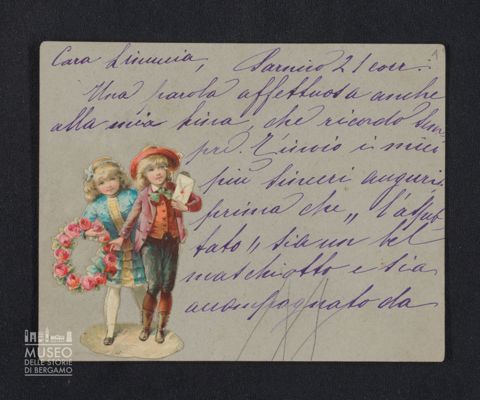 Cara Linuccia, Sarnico 21 corr.:
Una parola affettuosa anche
alla mia Lina, che ricordo sem-
pre. T'invio i miei
più sinceri auguri.
prima che „ l'aspet-
tato „ sia un bel
maschiotto e sia
accompagnato da
MUSEO
DELLE STORIE
DI BERGAMO